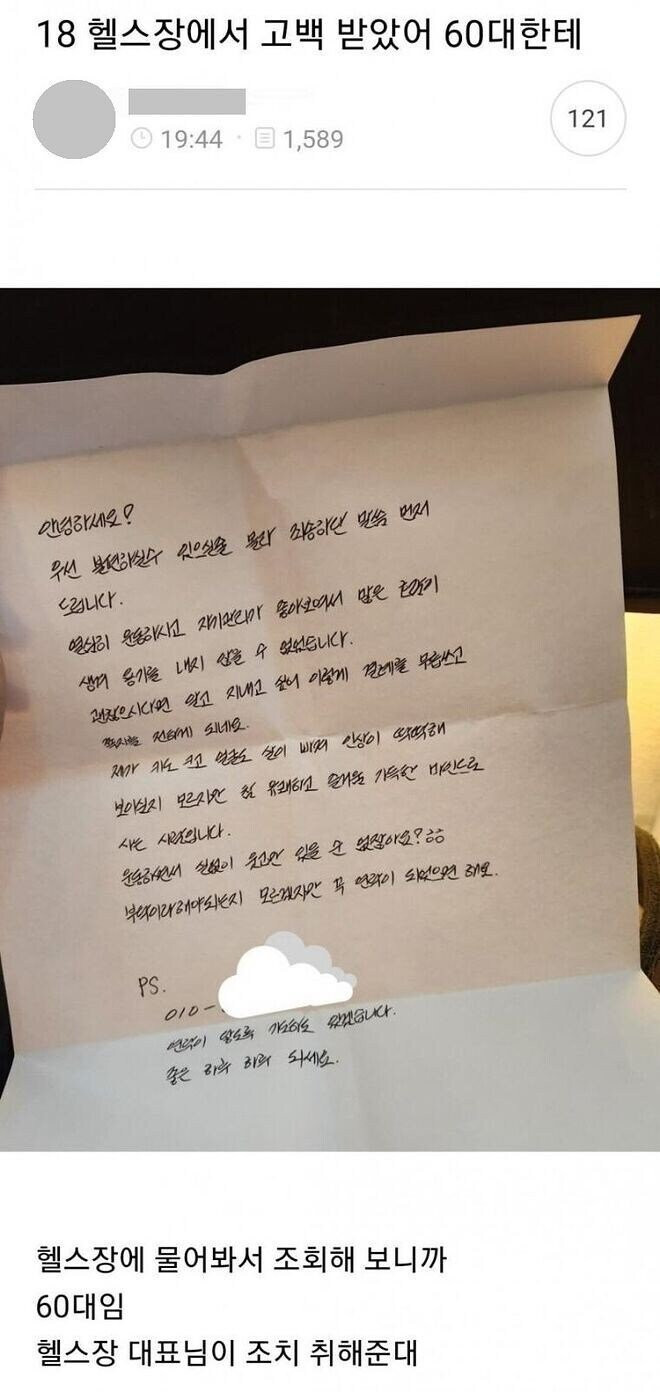 18 헬스장에서 고백 받았어 60대한테
19:44 · 1,589
121
안녕하세요?
우선 불편하실수 있으실을 몰라 죄송하단 말씀 먼저
드립니다.
열심히 운동하시고 자기관리가 좋아보여서 많은 호감이
생겨 용기를 내지 않을 수 없었습니다.
괜찮으시다면 알고 지내고 싶어 이렇게 결례를 무릅쓰고
쪽지를 전하게 되네요.
제가 키도 크고 얼굴도 살이 빠져 인상이 딱딱해
보이실지 모르지만 참 유쾌하고 즐거움 가득한 마인드로
사는 사람입니다.
운동하면서 실없이 웃고만 있을 순 없잖아요?
부탁이라해야되는지 모르겠지만 꼭 연락이 되었으면 해요.
PS.
010-
연락이 않도록 기도하도 있겠습니다.
좋은 하루 하루 되세요.
헬스장에 물어봐서 조회해 보니까
60대임
헬스장 대표님이 조치 취해준대